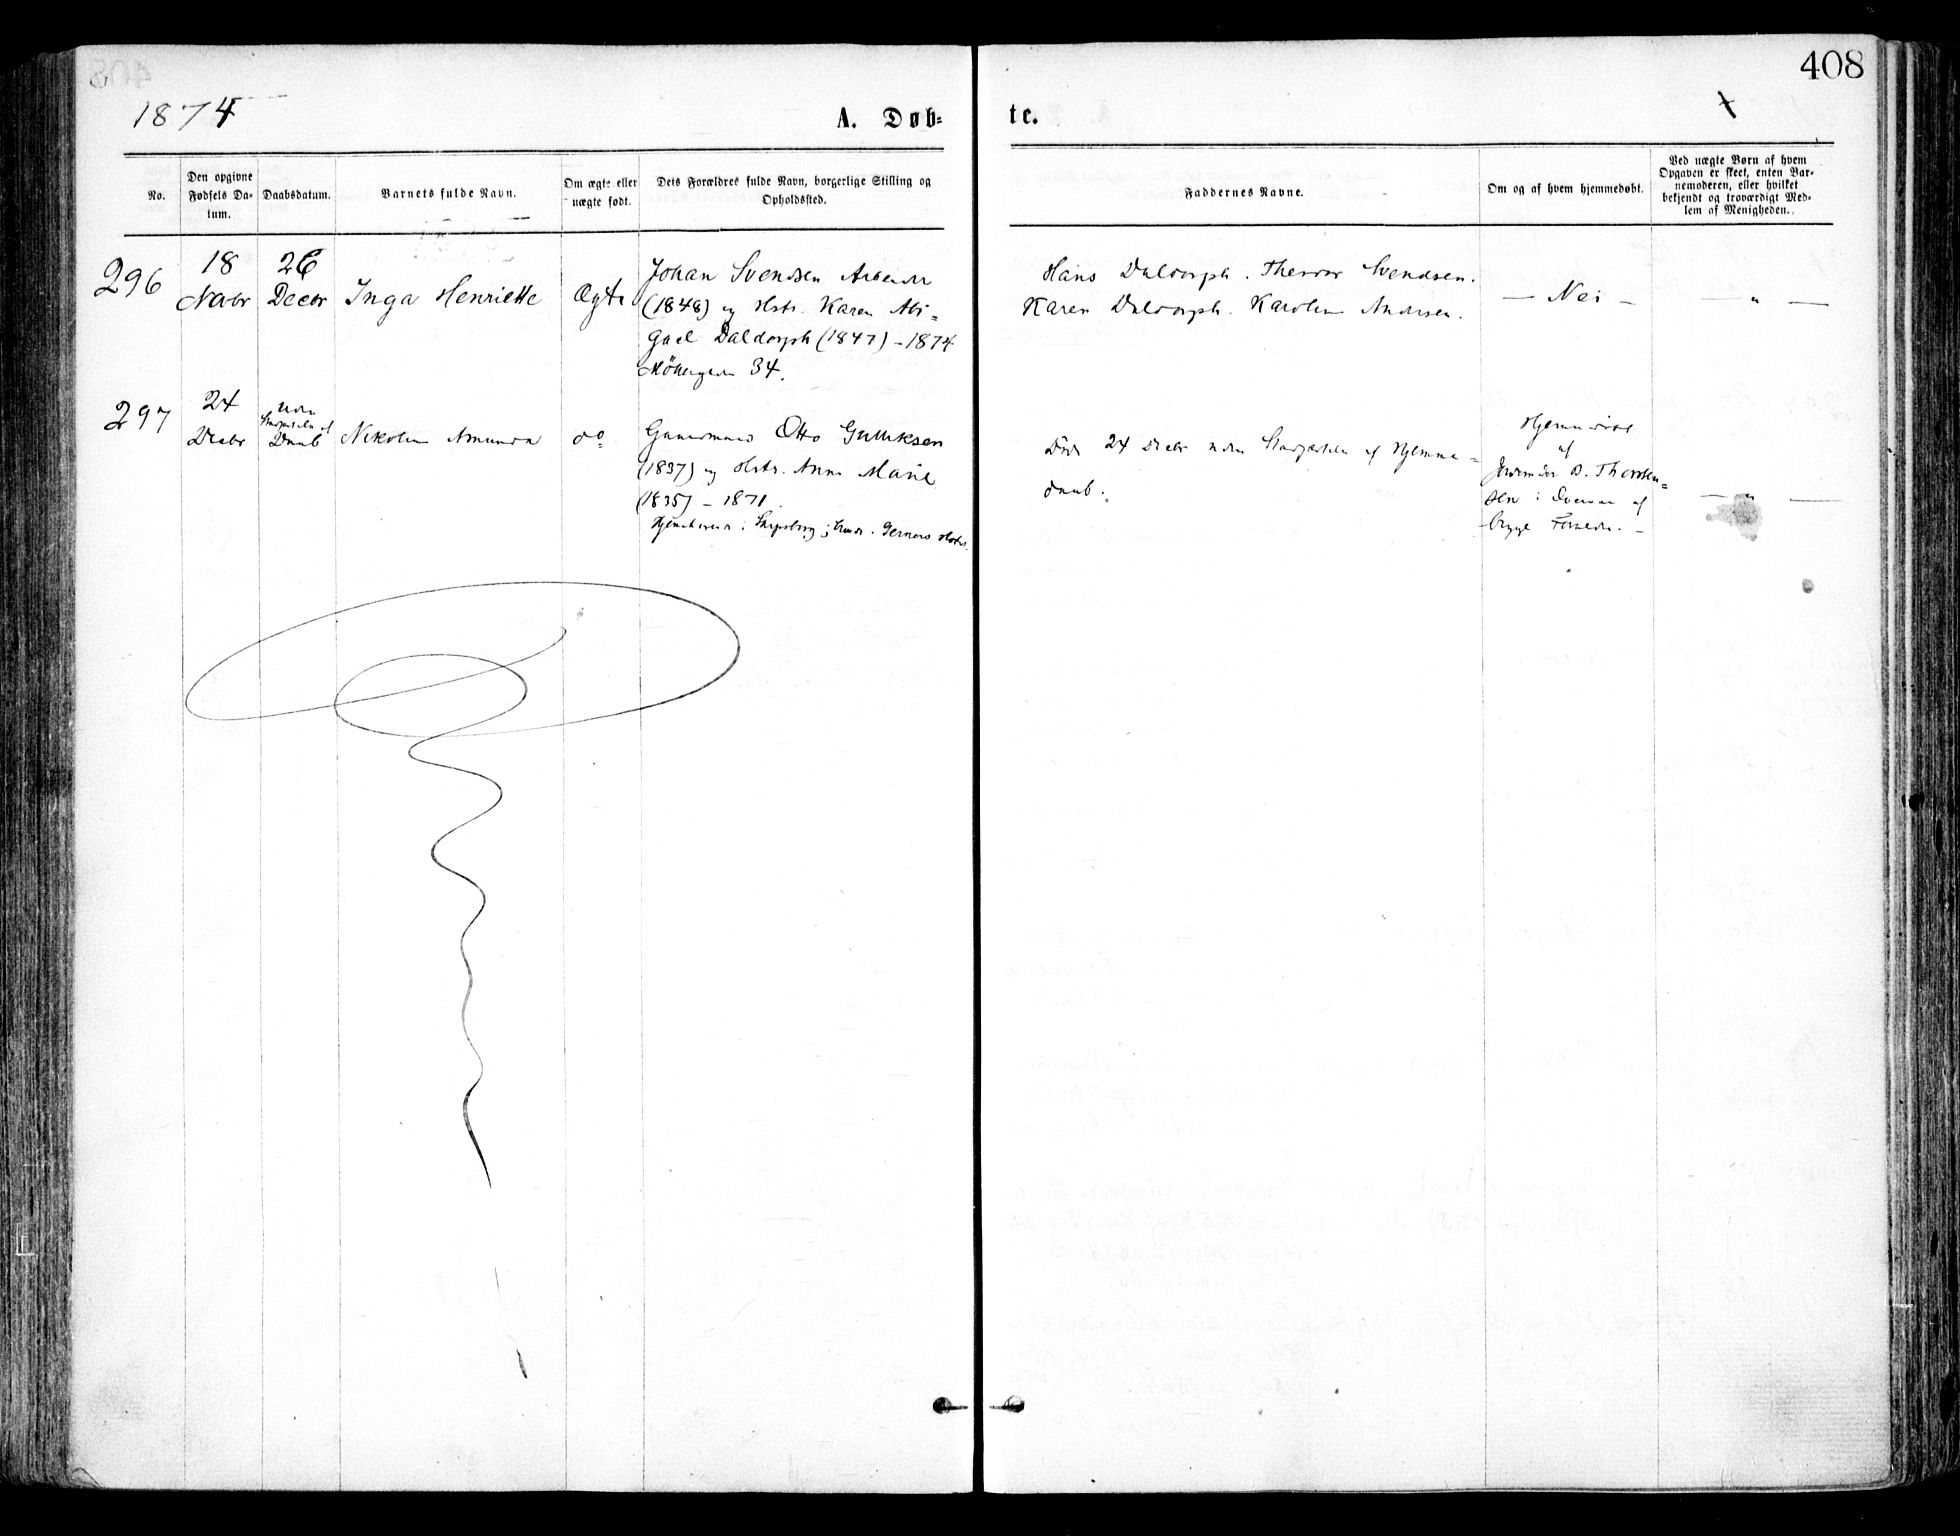 408
1874
A. Døb-
te.
No.
Den opgivne
Fødsels Da-
tum.
Daabsdatum.
Barnets fulde Navn.
Om ægte eller
uægte født.
Dets Forældres fulde Navn, borgerlige Stilling og
Opholdssted.
Faddernes Navne.
Om og af hvem hjemmedøbt.
Ved uægte Børn af hvem
Opgaven er skeet, enten Bar-
nemoderen, eller hvilket
bekjendt og troværdigt Med-
lem af Menigheden.
296
18
Novbr
26
Decbr
Inga Henriette
Ægte
Johan Svendsen Arbeider
(1848) og Hstr. Karen Abi-
gael Daldorph (1847) – 1874
34.
Hans Daldorph. Svendsen.
Karen Daldorph. Karoline Andersen.
— Nei —
— " —
297
24
Decbr
uden
af
Daab
Nikoline Amunda
do
Otto Gulliksen
(1837) og Hstr. Anne Marie
(1835) – 1871
Død 24 Decbr uden af Hjemme-
daab.
Hjemmedøbt
af
B. Thorsten-
sen i af
— " —